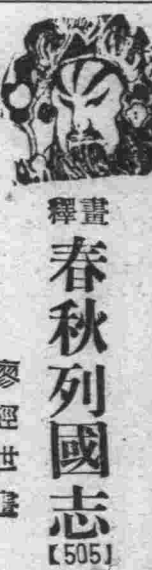 畫釋
春秋列國志
【505】
廖經世畫